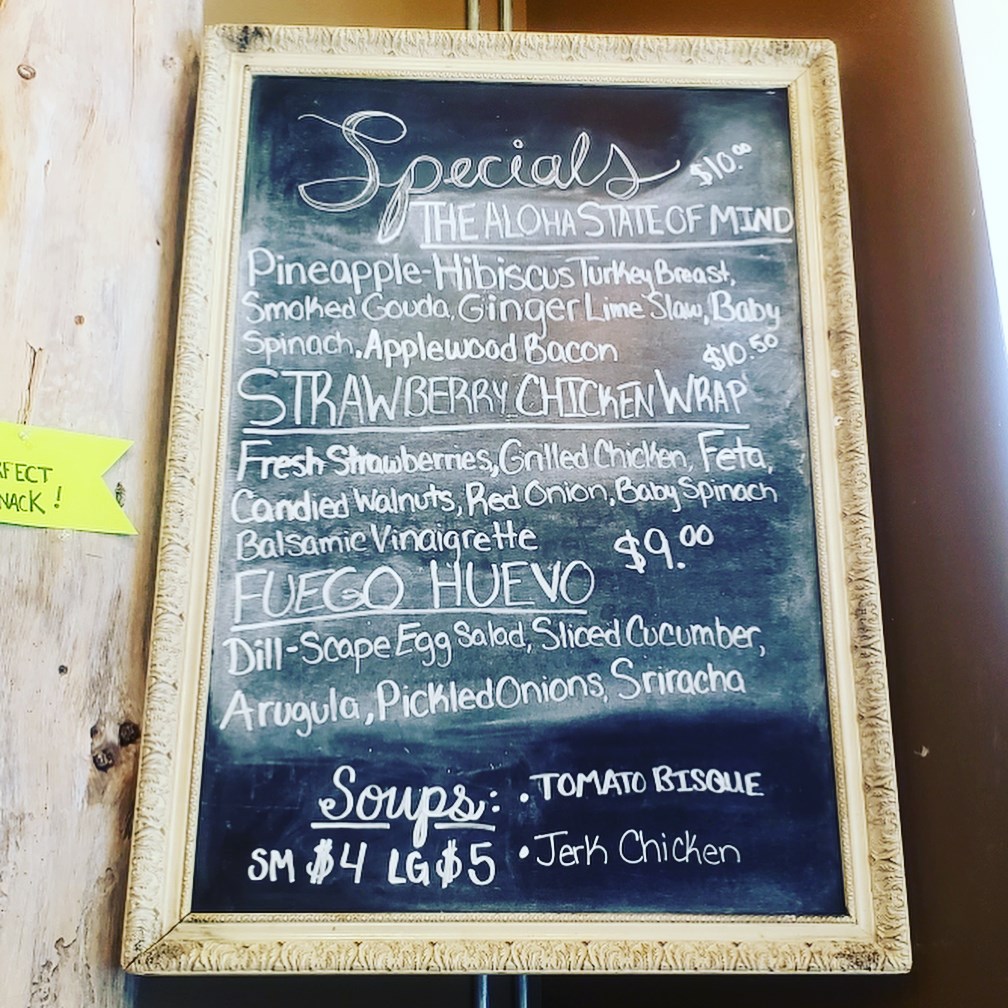 Specials
$10.00
THE ALOHA STATE OF MIND
Pineapple-Hibiscus Turkey Breast,
Smoked Gouda, Ginger Lime Slaw, Baby
Spinach, Applewood Bacon
$10.50
STRAWBERRY CHICKEN WRAP
Fresh Strawberries, Grilled Chicken, Feta,
Candied Walnuts, Red Onion, Baby Spinach
Balsamic Vinaigrette
$9.00
FUEGO HUEVO
Dill-Scape Egg Salad, Sliced Cucumber,
Arugula, Pickled Onions, Sriracha
Soups:
• TOMATO BISQUE
SM $4 LG $5
• Jerk Chicken